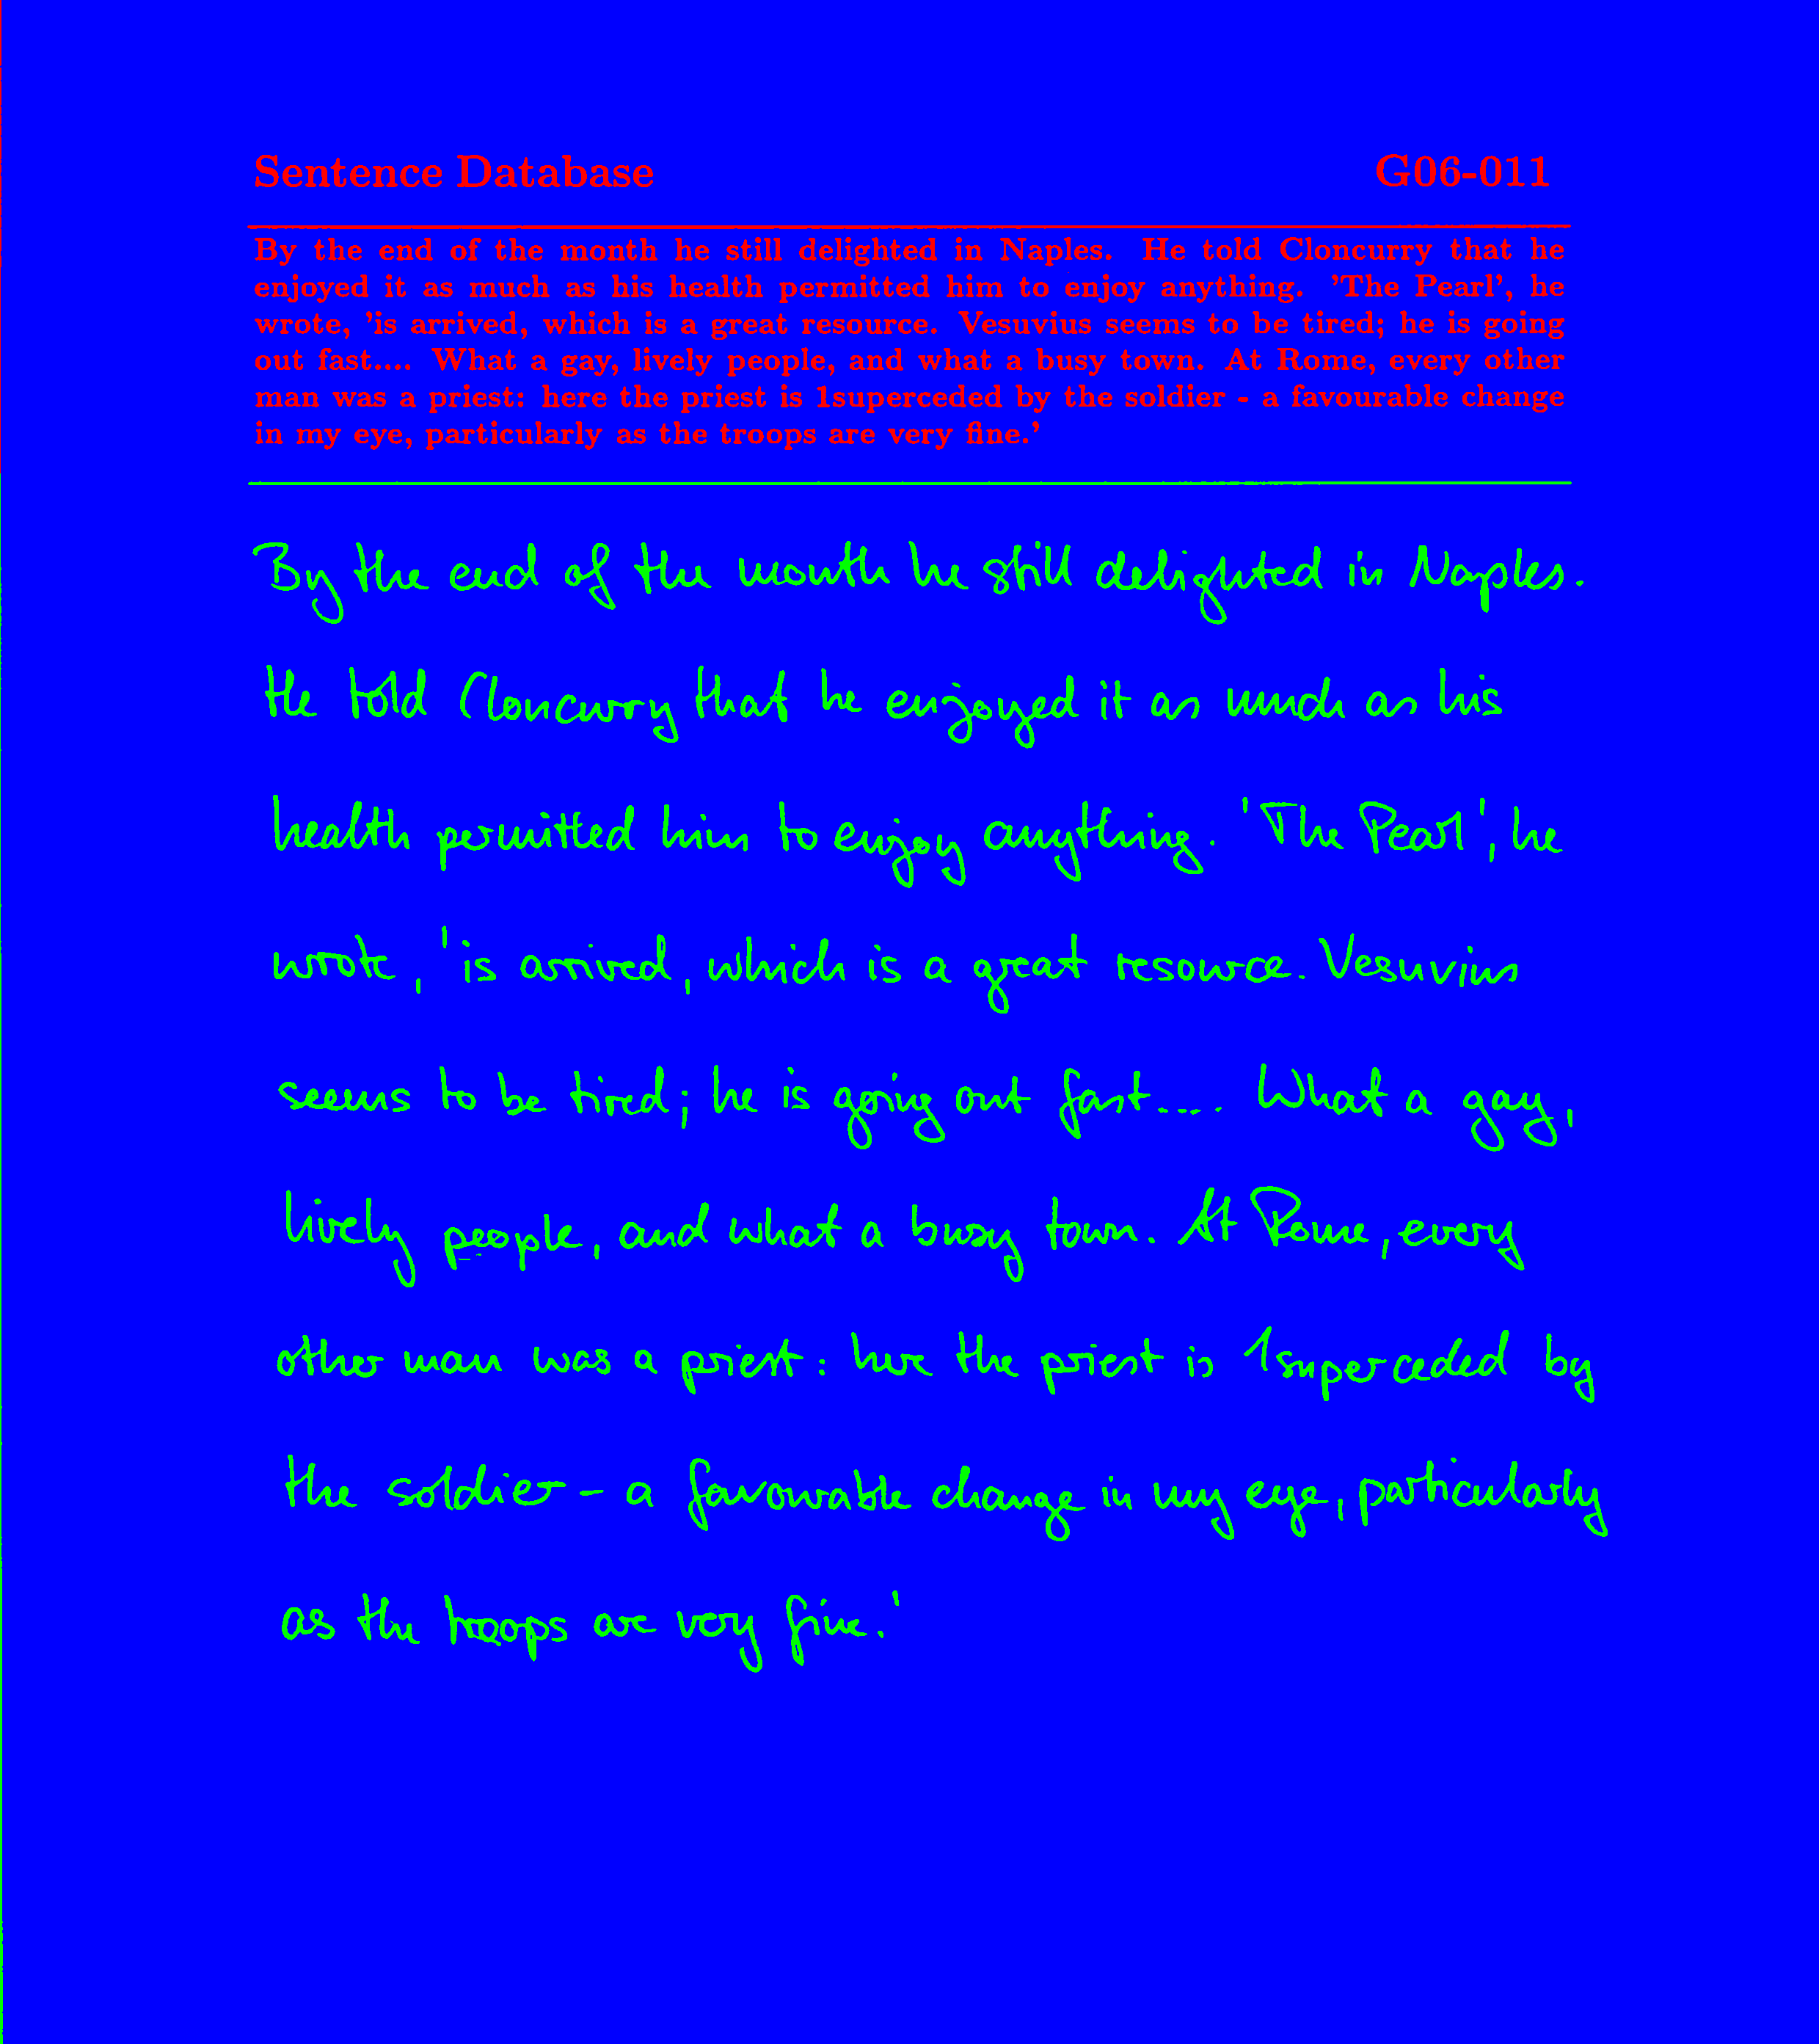 Sentence Database G06-011
By the end of the month he still delighted in Naples. He told Cloncurry that he
enjoyed it as much as his health permitted him to enjoy anything. 'The Pearl', he
wrote, 'is arrived, which is a great resource. Vesuvius seems to be tired; he is going
out fast.... What a gay, lively people, and what a busy town. At Rome, every other
man was a priest: here the priest is 1superceded by the soldier - a favourable change
in my eye, particularly as the troops are very fine.'
By the end of the month he still delighted in Naples.
He told Cloncurry that he enjoyed it as much as his
health permitted him to enjoy anything. 'The Pearl', he
wrote, 'is arrived, which is a great resource. Vesuvius
seems to be tired; he is going out fast.... What a gay,
lively people, and what a busy town. At Rome, every
other man was a priest: here the priest is 1superceded by
the soldier - a favourable change in my eye, particularly
as the troops are very fine.'